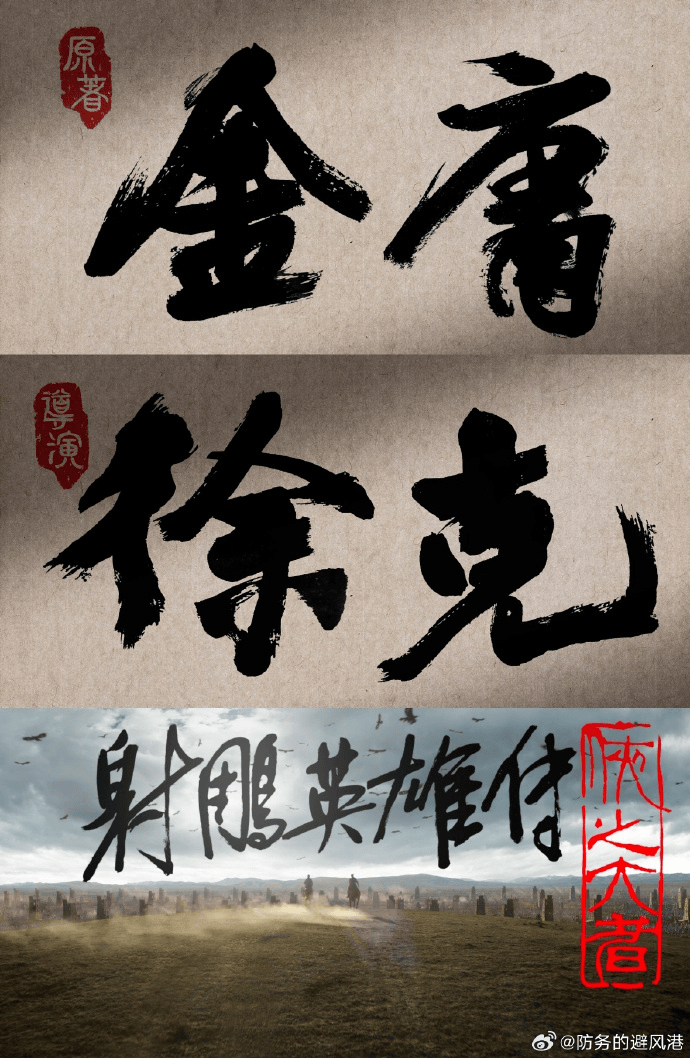 原著
金庸
導演
徐克
射鵰英雄传
俠之大者
@防务的避风港